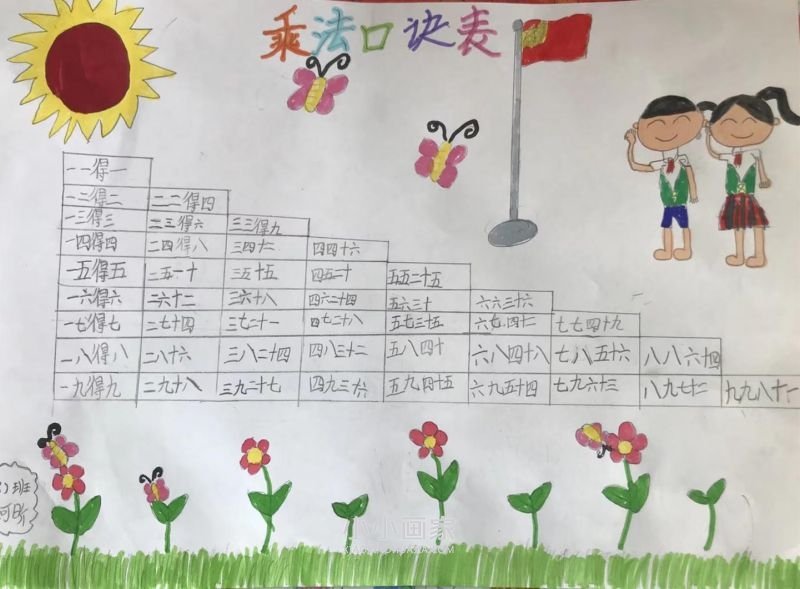 乘法口诀表
一一得一
一二得二 二二得四
一三得三 二三得六 三三得九
一四得四 二四得八 三四十二 四四十六
一五得五 二五一十 三五十五 四五二十 五五二十五
一六得六 二六十二 三六十八 四六二十四 五六三十 六六三十六
一七得七 二七十四 三七二十一 四七二十八 五七三十五 六七四十二 七七四十九
一八得八 二八十六 三八二十四 四八三十二 五八四十 六八四十八 七八五十六 八八六十四
一九得九 二九十八 三九二十七 四九三十六 五九四十五 六九五十四 七九六十三 八九七十二 九九八十一
班
小小画家